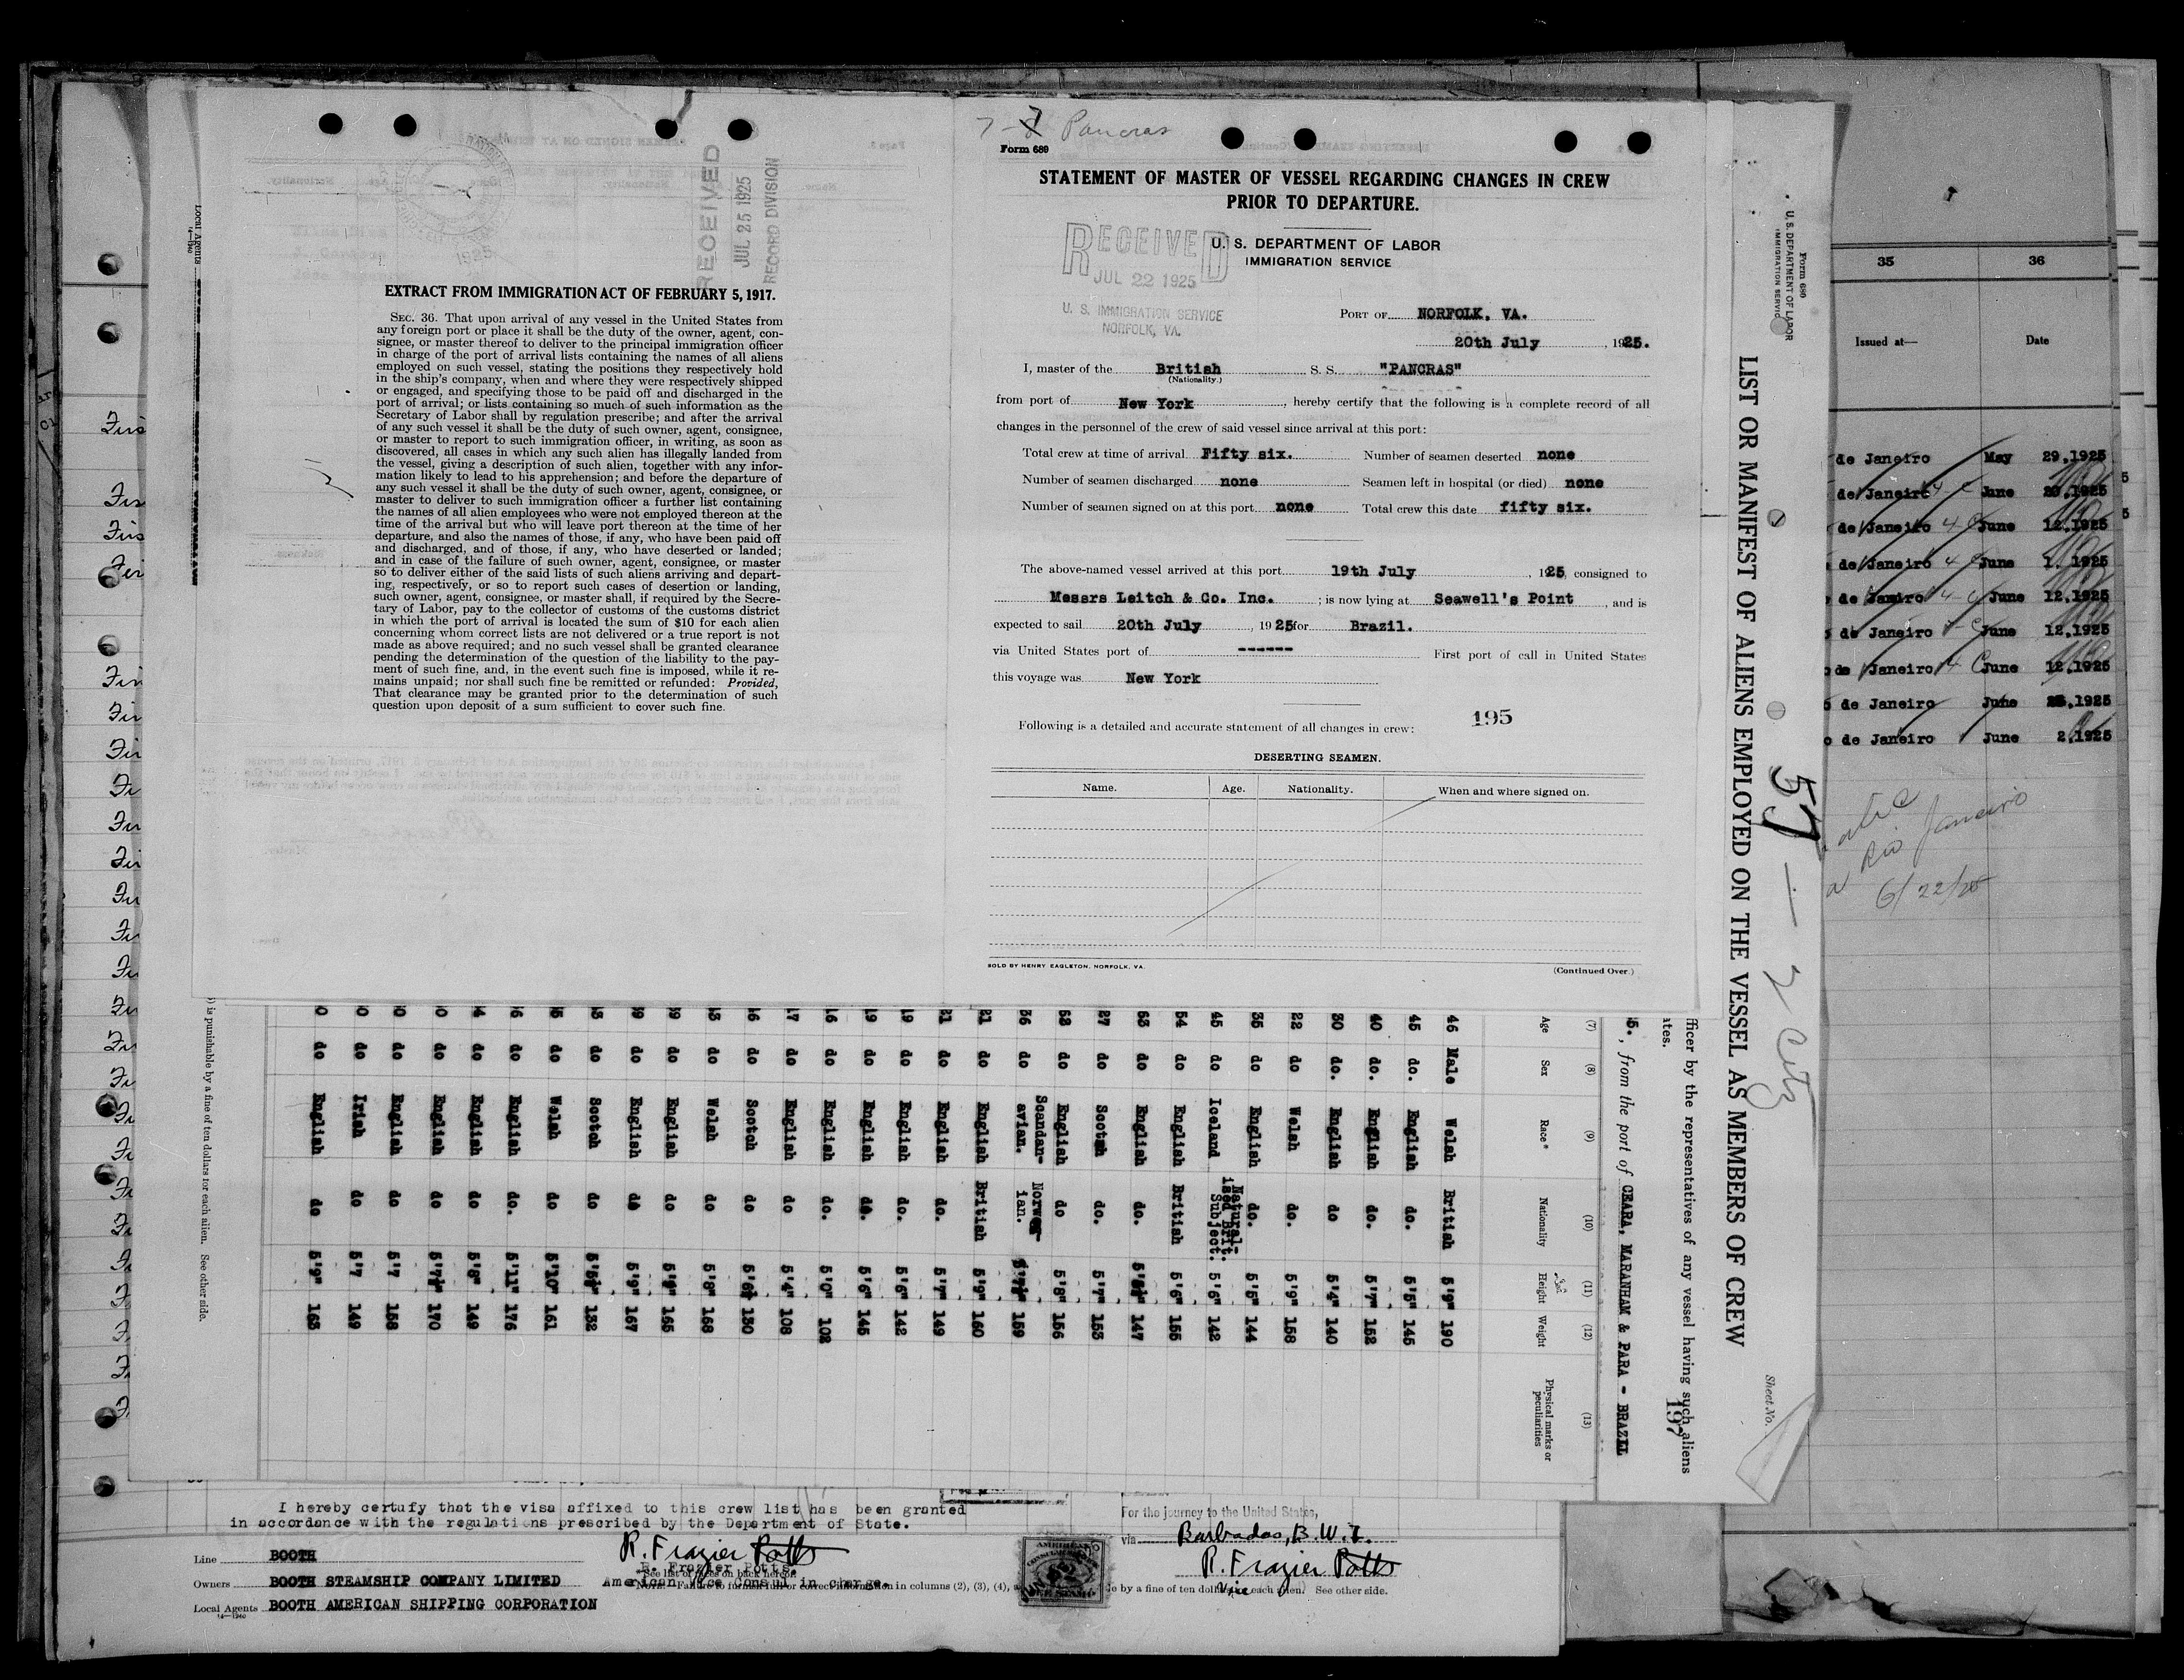 7-7 Pancras
Form 689
STATEMENT OF MASTER OF VESSEL REGARDING CHANGES IN CREW
PRIOR TO DEPARTURE.
U. S. DEPARTMENT OF LABOR
IMMIGRATION SERVICE
RECEIVED
JUL 22 1925
U. S. IMMIGRATION SERVICE
NORFOLK, VA.
PORT OF NORFOLK, VA.
20th July, 1925.
I, master of the British S. S. "PANCRAS"
(Nationality.)
from port of New York, hereby certify that the following is a complete record of all
changes in the personnel of the crew of said vessel since arrival at this port:
Total crew at time of arrival Fifty six. Number of seamen deserted none
Number of seamen discharged none Seamen left in hospital (or died) none
Number of seamen signed on at this port none Total crew this date fifty six.
The above-named vessel arrived at this port 19th July, 1925, consigned to
Messrs Leitch & Co. Inc.; is now lying at Seawell's Point, and is
expected to sail 20th July, 1925 for Brazil.
via United States port of ------ First port of call in United States
this voyage was New York
195
Following is a detailed and accurate statement of all changes in crew:
DESERTING SEAMEN.
Name. Age. Nationality. When and where signed on.
SOLD BY HENRY EAGLETON, NORFOLK, VA.
(Continued Over.)
RECEIVED
JUL 25 1925
RECORD DIVISION
EXTRACT FROM IMMIGRATION ACT OF FEBRUARY 5, 1917.
SEC. 36. That upon arrival of any vessel in the United States from
any foreign port or place it shall be the duty of the owner, agent, con-
signee, or master thereof to deliver to the principal immigration officer
in charge of the port of arrival lists containing the names of all aliens
employed on such vessel, stating the positions they respectively hold
in the ship's company, when and where they were respectively shipped
or engaged, and specifying those to be paid off and discharged in the
port of arrival; or lists containing so much of such information as the
Secretary of Labor shall by regulation prescribe; and after the arrival
of any such vessel it shall be the duty of such owner, agent, consignee,
or master to report to such immigration officer, in writing, as soon as
discovered, all cases in which any such alien has illegally landed from
the vessel, giving a description of such alien, together with any infor-
mation likely to lead to his apprehension; and before the departure of
any such vessel it shall be the duty of such owner, agent, consignee, or
master to deliver to such immigration officer a further list containing
the names of all alien employees who were not employed thereon at the
time of the arrival but who will leave port thereon at the time of her
departure, and also the names of those, if any, who have been paid off
and discharged, and of those, if any, who have deserted or landed;
and in case of the failure of such owner, agent, consignee, or master
so to deliver either of the said lists of such aliens arriving and depart-
ing, respectively, or so to report such cases of desertion or landing,
such owner, agent, consignee, or master shall, if required by the Secre-
tary of Labor, pay to the collector of customs of the customs district
in which the port of arrival is located the sum of $10 for each alien
concerning whom correct lists are not delivered or a true report is not
made as above required; and no such vessel shall be granted clearance
pending the determination of the question of the liability to the pay-
ment of such fine, and, in the event such fine is imposed, while it re-
mains unpaid; nor shall such fine be remitted or refunded: Provided,
That clearance may be granted prior to the determination of such
question upon deposit of a sum sufficient to cover such fine.
Form 689
U. S. DEPARTMENT OF LABOR
IMMIGRATION SERVIC
LIST OR MANIFEST OF ALIENS EMPLOYED ON THE VESSEL AS MEMBERS OF CREW
Sheet No.
57 — 2 Citz
fficer by the representatives of any vessel having such aliens
ates.
197
, from the port of CEARA, MARANHAM & PARA - BRAZIL
(7) (8) (9) (10) (11) (12) (13)
Age Sex Race* Nationality Height Weight Physical marks or peculiarities
46 Male Welsh British 5'9" 190
45 do. English do. 5'5" 145
40 do. English do. 5'7" 152
30 do. English do 5'4" 140
22 do Welsh do. 5'9" 158
35 do English do. 5'5" 144
45 do Iceland Natural-ised Brit. Subject. 5'6" 142
54 do English British 5'6" 155
53 do English do. 147
27 do Scotch do. 5'7" 153
52 do English do 5'8" 156
36 do Scandan-avian. Norweg-ian. 159
21 do English British 5'9" 160
21 do English do. 5'7" 149
19 do English do. 5'6" 142
19 do English do. 5'6" 145
16 do English do. 5'0" 102
17 do English do 5'4" 108
16 do Scotch do 130
do Welsh do 5'8" 158
do English do 165
do English do 5'9" 167
do Scotch do 132
do Welsh do 5'10" 161
do English do. 5'11" 176
do English do 5'8" 149
do English do 170
do English do 5'7 158
do Irish do 5'7 149
do English do 5'9" 163
) is punishable by a fine of ten dollars for each alien. See other side.
Local Agents
14—1240
35 36
Issued at— Date
de Janeiro May 29,1925
de Janeiro June 1925
de Janeiro June 12,1925
de Janeiro June 1, 1925
de Janeiro June 12,1925
de Janeiro June 12,1925
de Janeiro June 12,1925
de Janeiro June 1925
de Janeiro June 2,1925
Rio Janeiro
6/22/25
I hereby certify that the visa affixed to this crew list has been granted
in accordance with the regulations prescribed by the Department of State.
R. Frazier Potts
R. Frazier Potts.
American Vice Consul in charge.
For the journey to the United States,
via Barbados, B.W.I.
R. Frazier Potts
Vice
*See list of races on back hereof.
Line BOOTH
Owners BOOTH STEAMSHIP COMPANY LIMITED
Local Agents BOOTH AMERICAN SHIPPING CORPORATION
14—1240